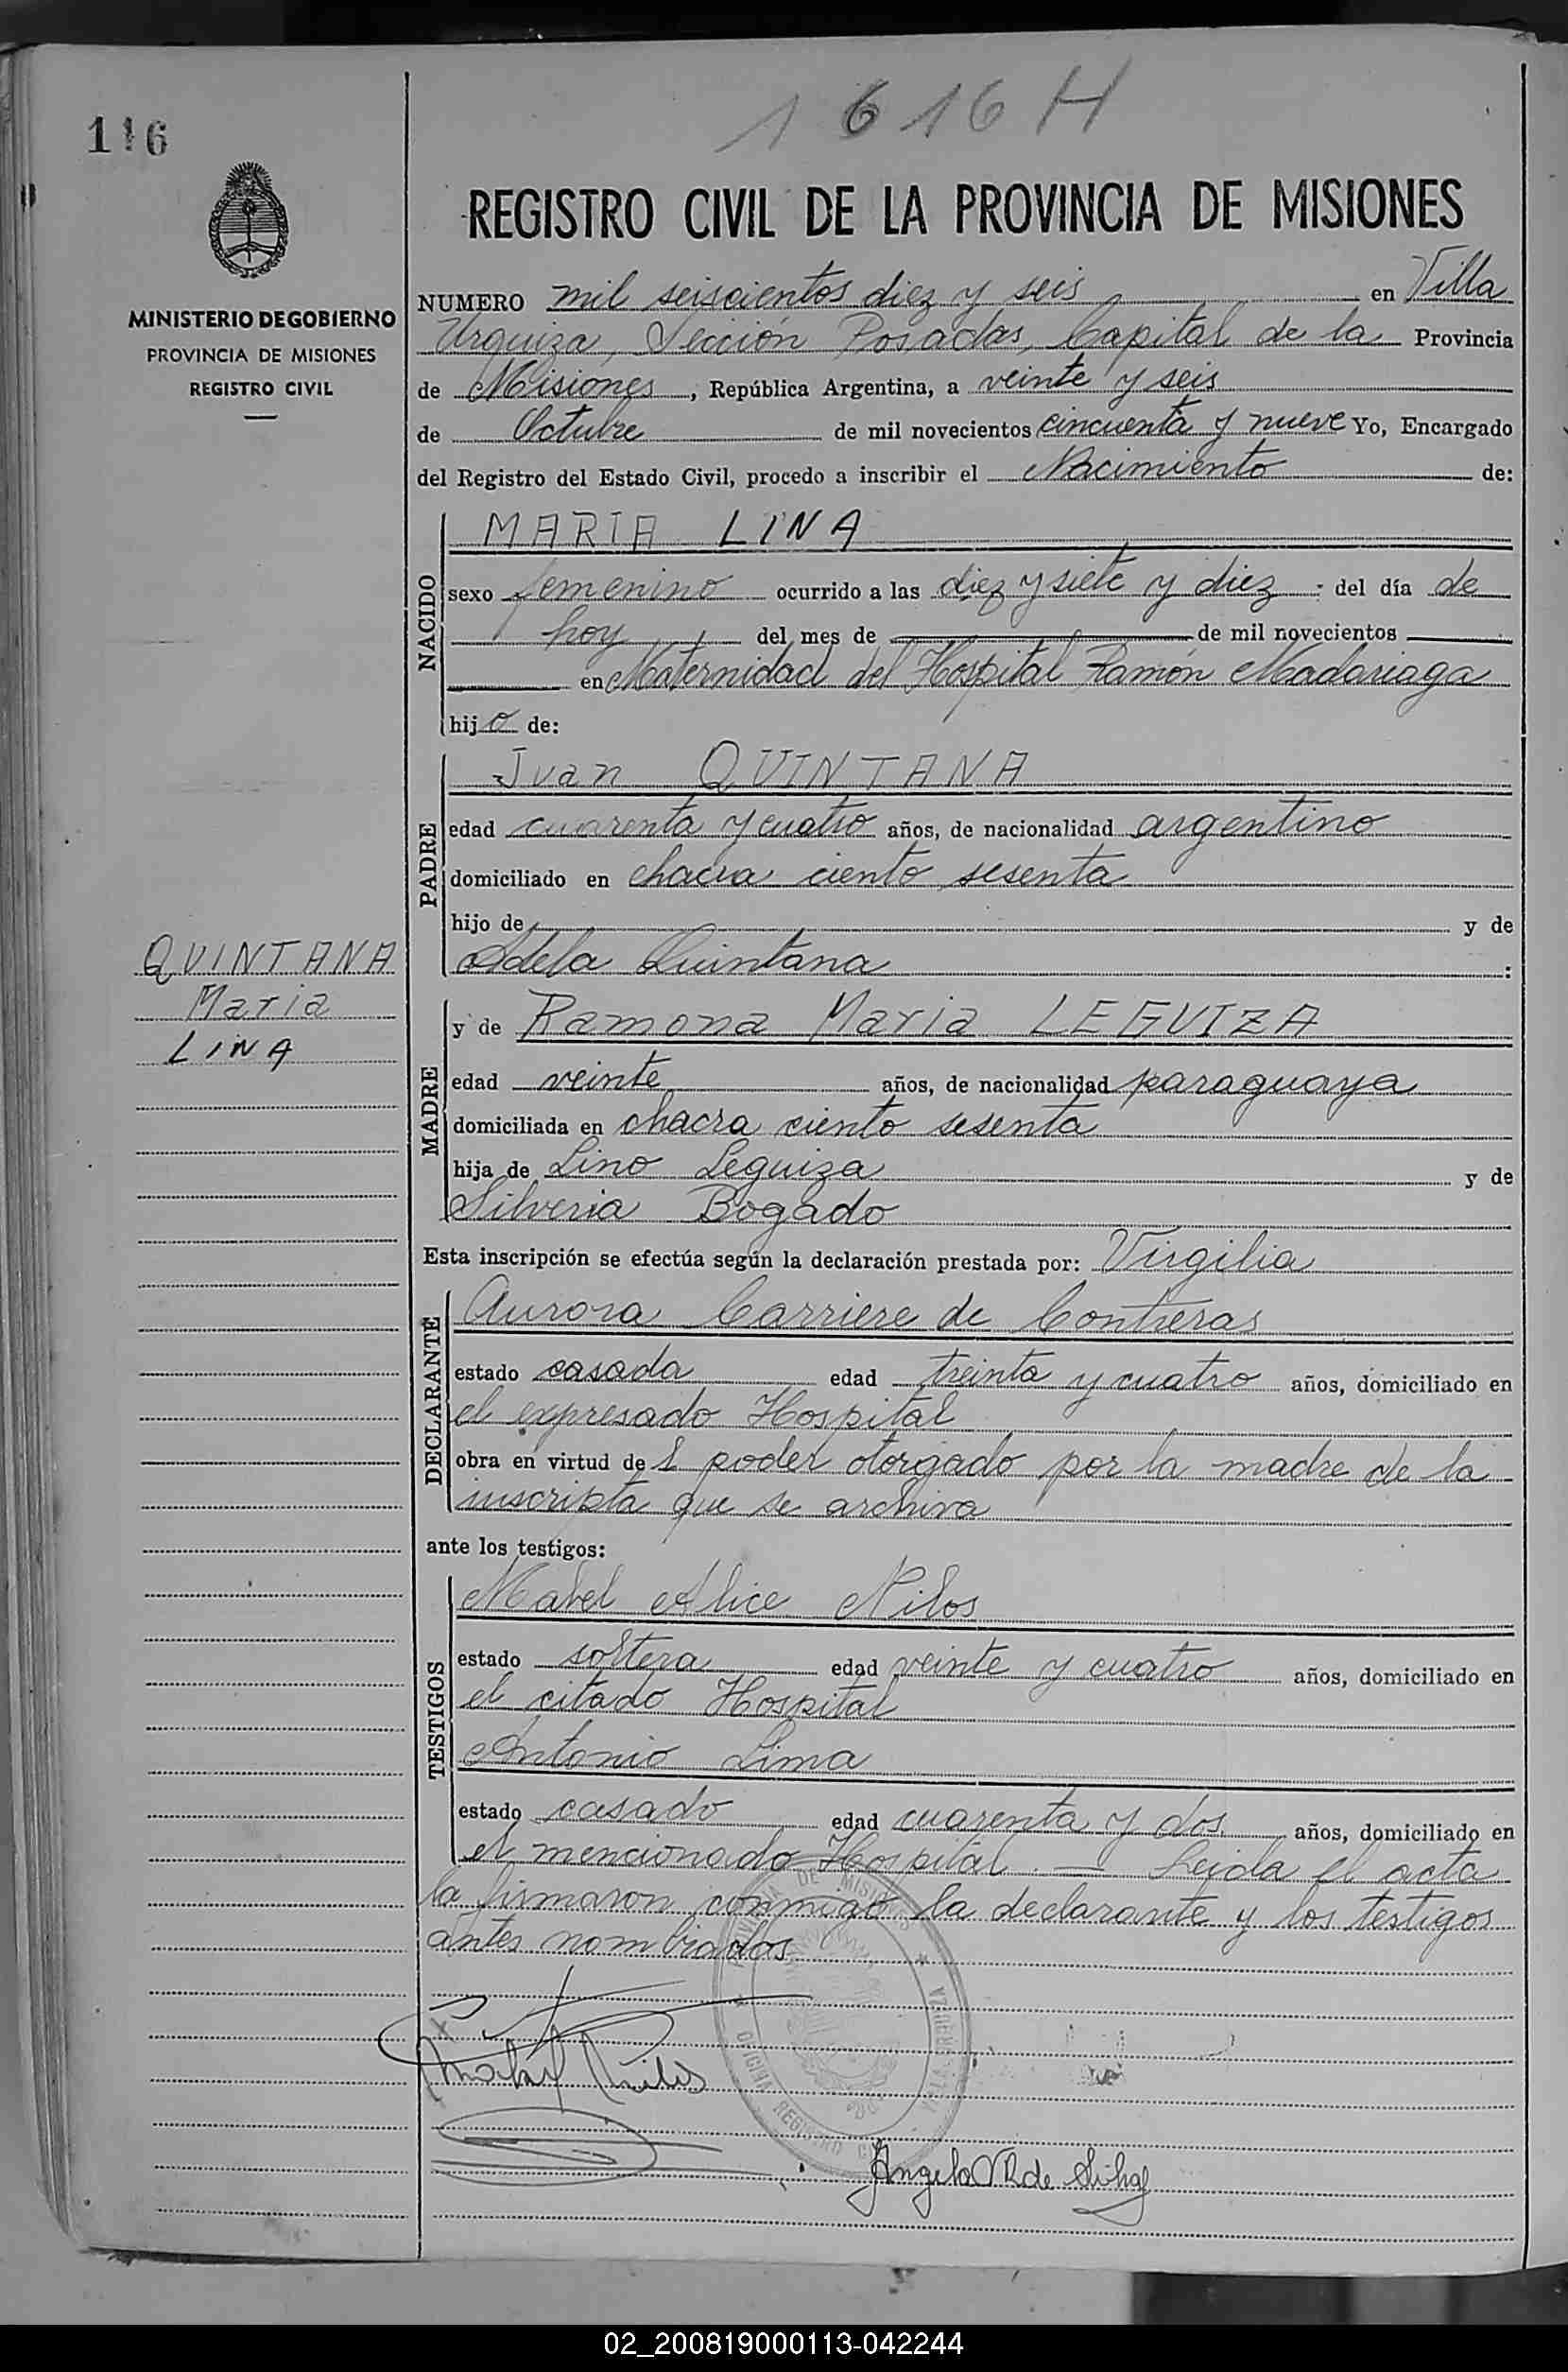 1 6 16 H
116
REGISTRO CIVIL DE LA PROVINCIA DE MISIONES
MINISTERIO DE GOBIERNO
PROVINCIA DE MISIONES
REGISTRO CIVIL
NUMERO mil seiscientos diez y seis en Villa
Urquiza, Sección Posadas, Capital de la Provincia
de Misiones, República Argentina, a veinte y seis
de Octubre de mil novecientos cincuenta y nueve Yo, Encargado
del Registro del Estado Civil, procedo a inscribir el Nacimiento de:
NACIDO
MARIA LINA
sexo femenino ocurrido a las diez y siete y diez del día de
hoy del mes de de mil novecientos
en Maternidad del Hospital Ramón Madariaga
hijo de:
PADRE
Juan QUINTANA
edad cuarenta y cuatro años, de nacionalidad argentino
domiciliado en chacra ciento sesenta
hijo de y de
Adela Quintana :
QUINTANA
Maria
LINA
MADRE
y de Ramona Maria LEGUIZA
edad veinte años, de nacionalidad paraguaya
domiciliada en chacra ciento sesenta
hija de Lino Leguiza y de
Silveria Bogado
Esta inscripción se efectúa según la declaración prestada por: Virgilia
DECLARANTE
Aurora Carriere de Contreras
estado casada edad treinta y cuatro años, domiciliado en
el expresado Hospital
obra en virtud del poder otorgado por la madre de la
inscripta que se archiva
ante los testigos:
TESTIGOS
Mabel Alice Nilos
estado soltera edad veinte y cuatro años, domiciliado en
el citado Hospital
Antonio Lima
estado casado edad cuarenta y dos años, domiciliado en
el mencionado Hospital. — Leida el acta
la firmaron conmigo la declarante y los testigos
antes nombrados
OFICINA REGISTRO
Angela
02_200819000113-042244